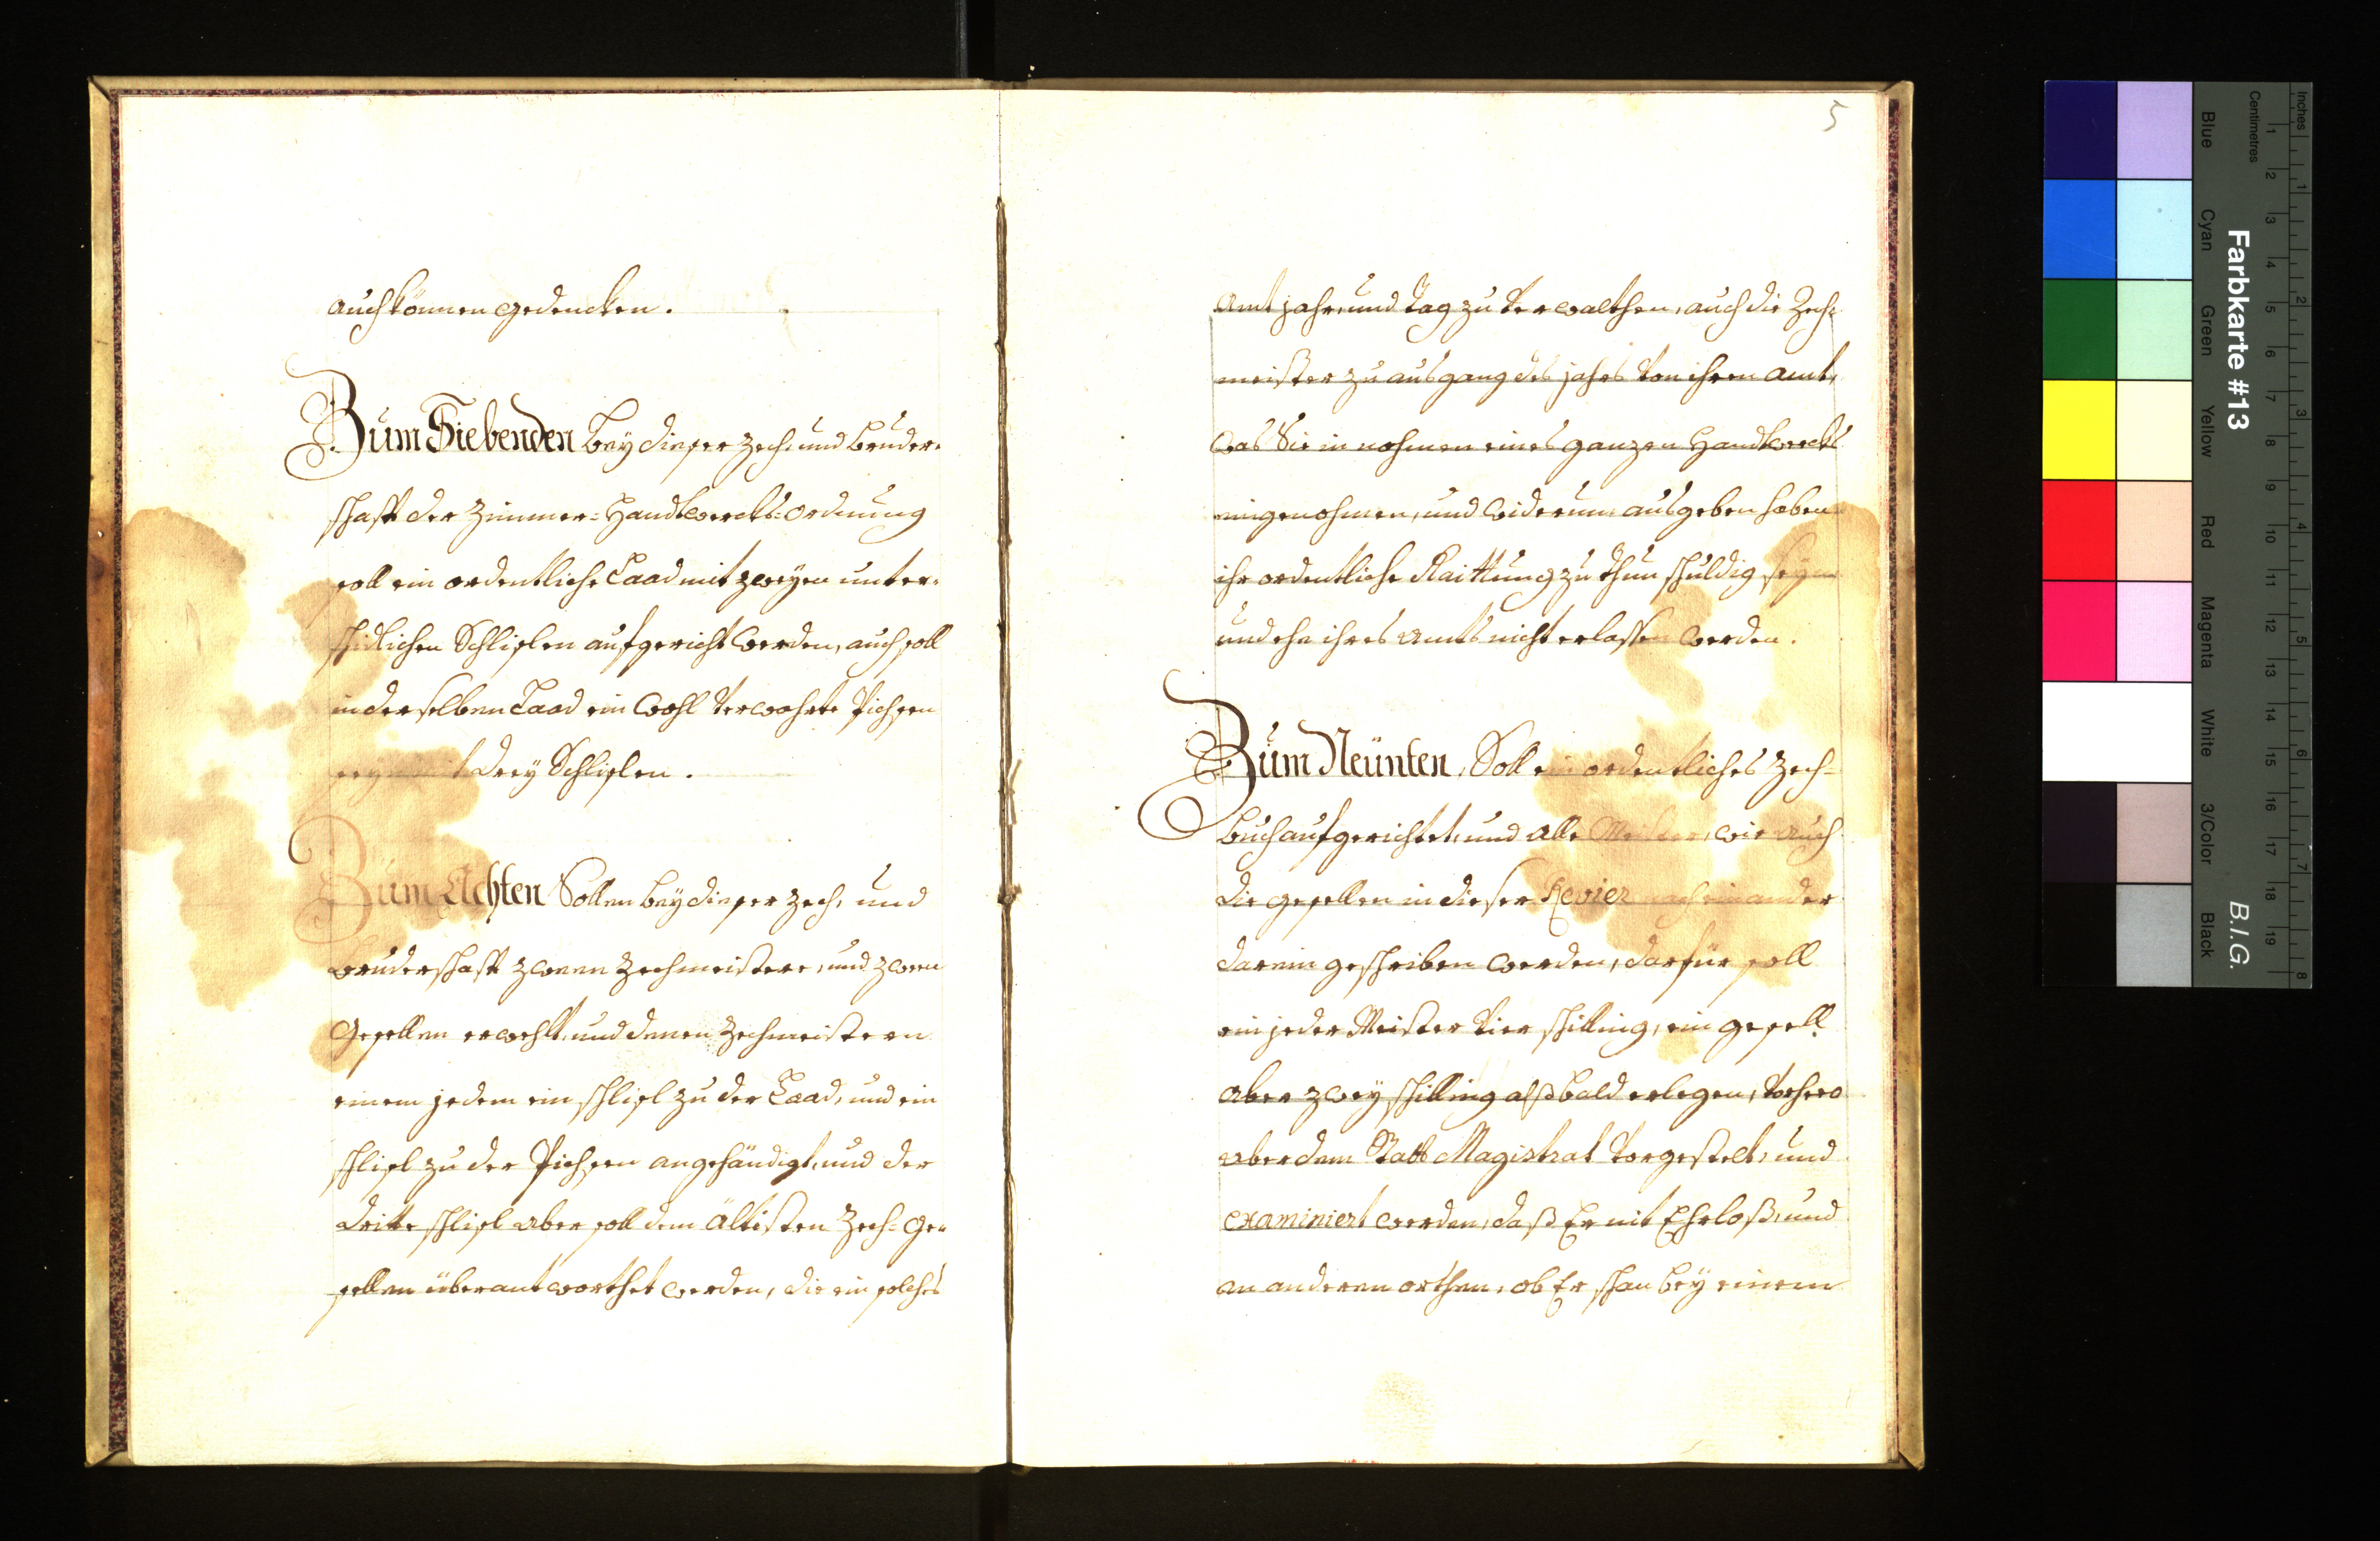 auch können gedencken.
Zum Siebenden bey dieser Zech, und Bruder=
schafft der Zimmer=Handtwercks=ordnung
soll ein ordentliche Laad mit zweyen unter=
schidlichen Schlislen aufgericht werden, auch soll
in derselben Laad ein wohl verwahrte Pichsen
seyn mit drey Schlislen.
Zum Achten Sollen bey dieser Zech, und
bruderschafft zween Zechmeistere, und zween
Gesellen erwehlt, und denen Zechmeistern
einem jedem ein schlisl zu der Laad, und ein
schlisl zu der Pichsen angehändigt, und der
dritte schlisl aber soll dem ältisten Zech=ge=
sellen überantworthet werden, die ein solches
5
Amt jahr, und tag zu verwalthen, auch die Zech=
meister zu ausgang des jahrs von ihren amt,
was Sie in nahmen eines ganzen Handtwercks
eingenohmen, und widerum ausgeben haben
ihr ordentliche Raittung zu thun schuldig seyn
und ehe ihres Amts nicht erlassen werden.
Zum Neünten, Soll ein ordentliches Zech=
buch aufgerichtet, und alle Meister, wie auch
die gesellen in dieser Revier nach einander
darein geschriben werden, darfür soll
ein jeder Meister vier schilling, ein gesell
aber zwey schilling alßbald erlegen, vorhero
aber dem Statt Magistrat vorgestelt, und
examiniert werden, daß Er nit Ehrloß, und
an anderen orthen, ob Er schon bey einem